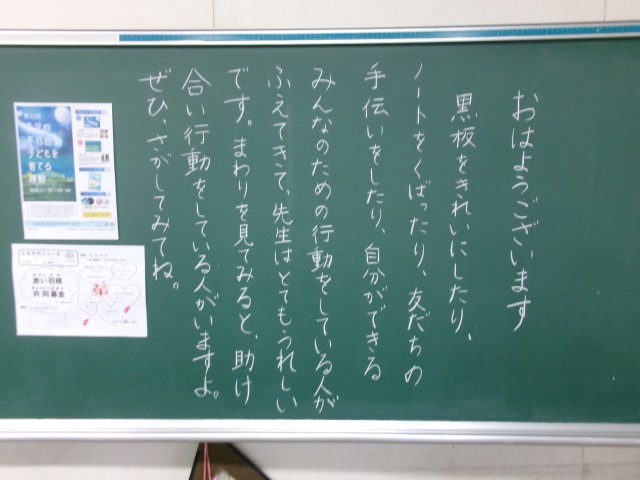 おはようございます
黒板をきれいにしたり、
ノートをくばったり、友だちの
手伝いをしたり、自分ができる
みんなのための行動をしている人が
ふえてきて、先生はとてもうれしい
です。まわりを見てみると、助け
合い行動をしている人がいますよ。
ぜひ、さがしてみてね。
子どもを
育てる
運動
赤い羽根
共同募金